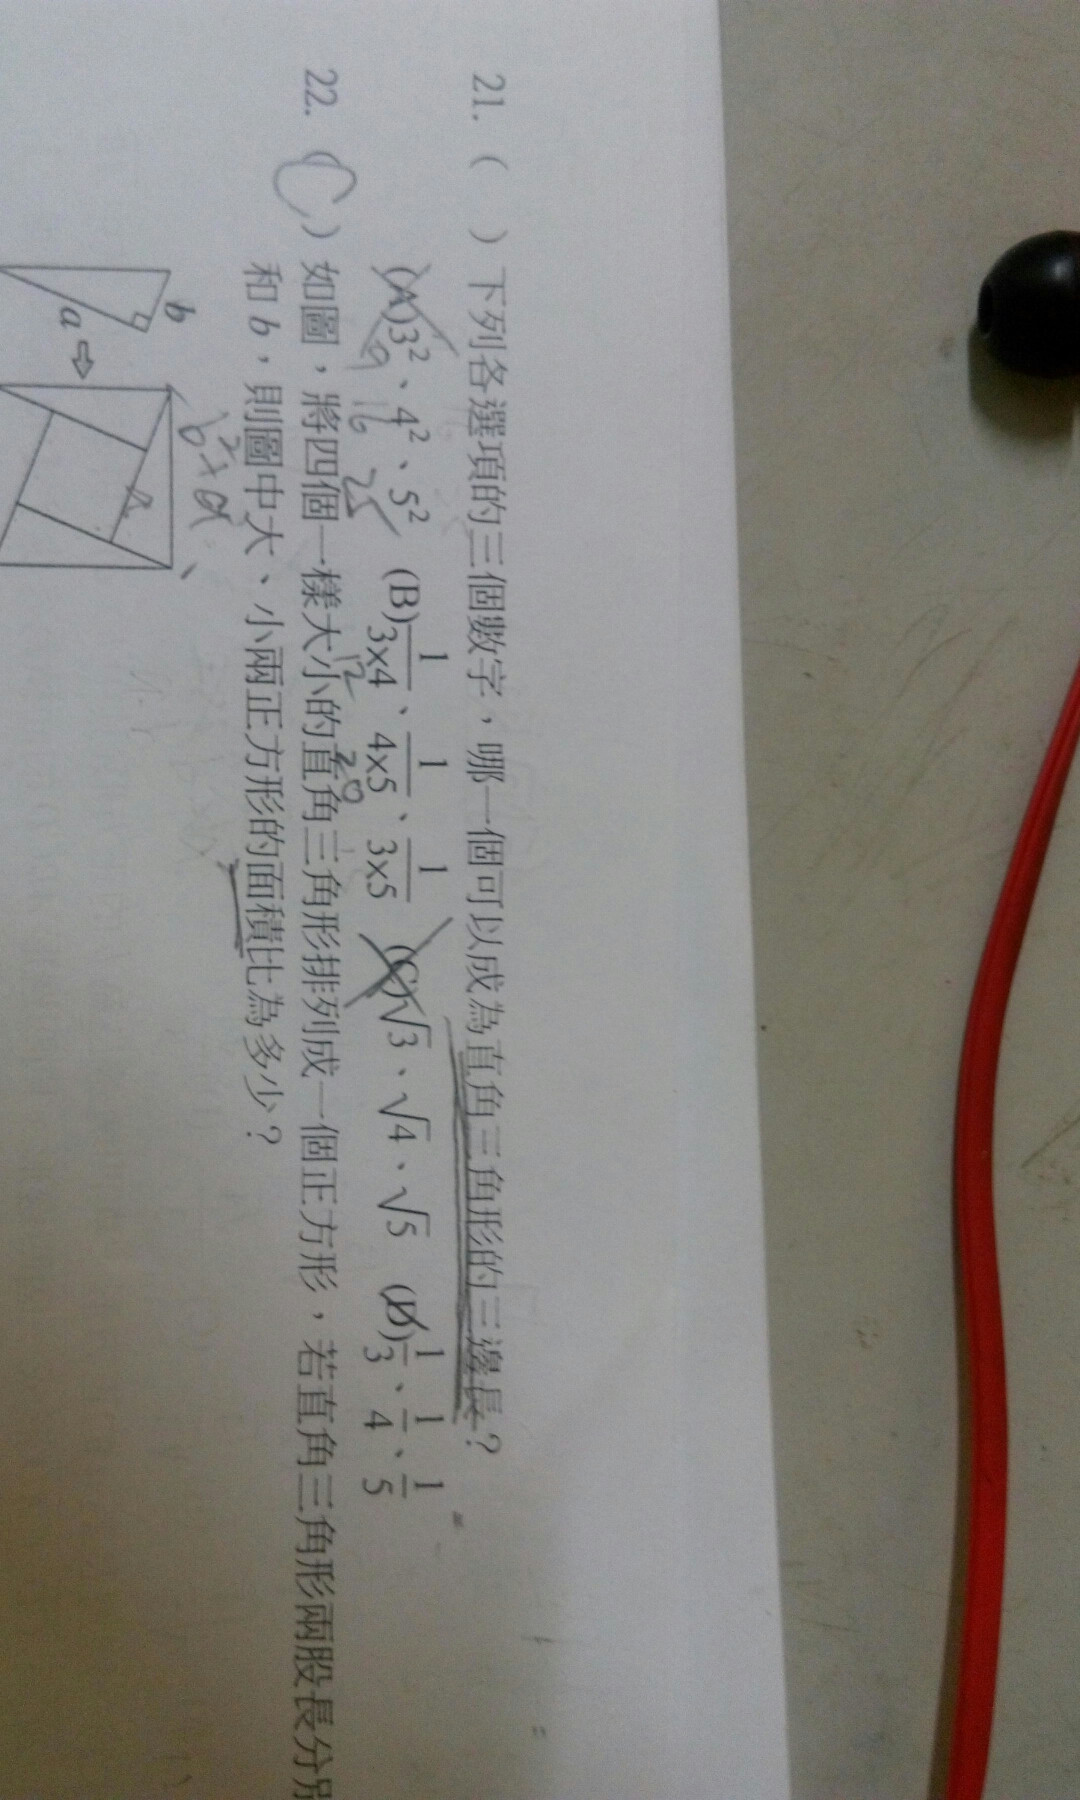 21. ( ) 下列各選項的三個數字，哪一個可以成為直角三角形的三邊長？
(A)3²、4²、5² (B)1/3×4、1/4×5、1/3×5 (C)√3、√4、√5 (D)1/3、1/4、1/5
9 16 25 12 20
22. (C) 如圖，將四個一樣大小的直角三角形排列成一個正方形，若直角三角形兩股長分別
和 b，則圖中大、小兩正方形的面積比為多少？
b
a
b²+a²